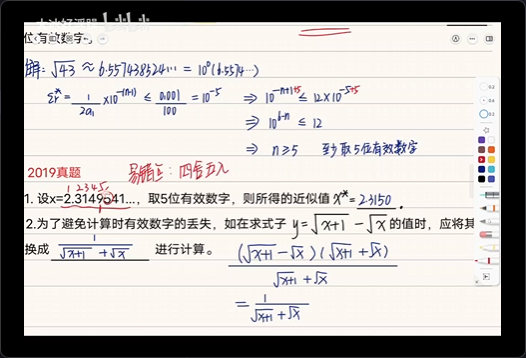 位有效数字。
解: √43 ≈ 6.557438524… = 10⁰(6.5574…)
εr* = 1/(2a₁) ×10^-(n-1) ≤ 0.001/100 = 10^-5 ⇒ 10^-n+1+5 ≤ 12×10^-5+5
⇒ 10^6-n ≤ 12
⇒ n≥5 至少取5位有效数字
2019真题 易错点: 四舍五入
1 2 3 4 5
1. 设x=2.3149541…, 取5位有效数字，则所得的近似值 x*= 2.3150 .
2.为了避免计算时有效数字的丢失，如在求式子 y=√(x+1) − √x 的值时，应将其
换成 1/(√(x+1) + √x) 进行计算。 (√(x+1) − √x)(√(x+1) + √x)/(√(x+1) + √x)
= 1/(√(x+1) + √x)